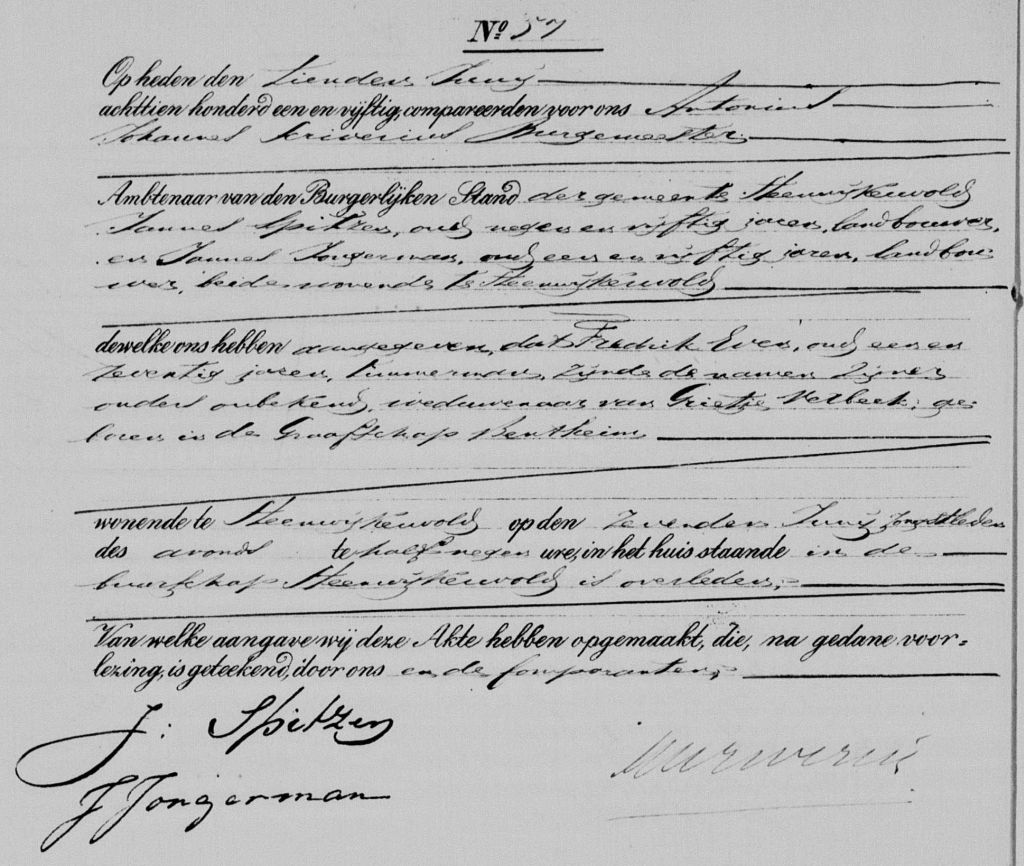 No. 57
Op heden den tienden Junij
achttien honderd een en vijftig, compareerden voor ons Antonius
Johannes Scriverius Burgemeester
Ambtenaar van den Burgerlijken Stand der gemeente Steenwijkerwold
Jannes Spitzen, oud negen en vijftig jaren, landbouwer,
en Jannes Jongerman, oud een en vijftig jaren, landbou-
wer, beide wonende te Steenwijkerwold
dewelke ons hebben aangegeven, dat Fredrik Evers, oud een en
zeventig jaren, timmerman, zijnde de namen zijner
ouders onbekend, weduwenaar van Grietje Verbeek, ge-
boren in de Graafschap Bentheim
wonende te Steenwijkerwold op den zevenden Junij jongstleden
des avonds te half negen ure, in het huis staande in de
buurschap Steenwijkerwold is overleden,
Van welke aangave wij deze Akte hebben opgemaakt, die, na gedane voor-
lezing, is geteekend, door ons en de komparanten,
J: Spitzen
J Jongerman